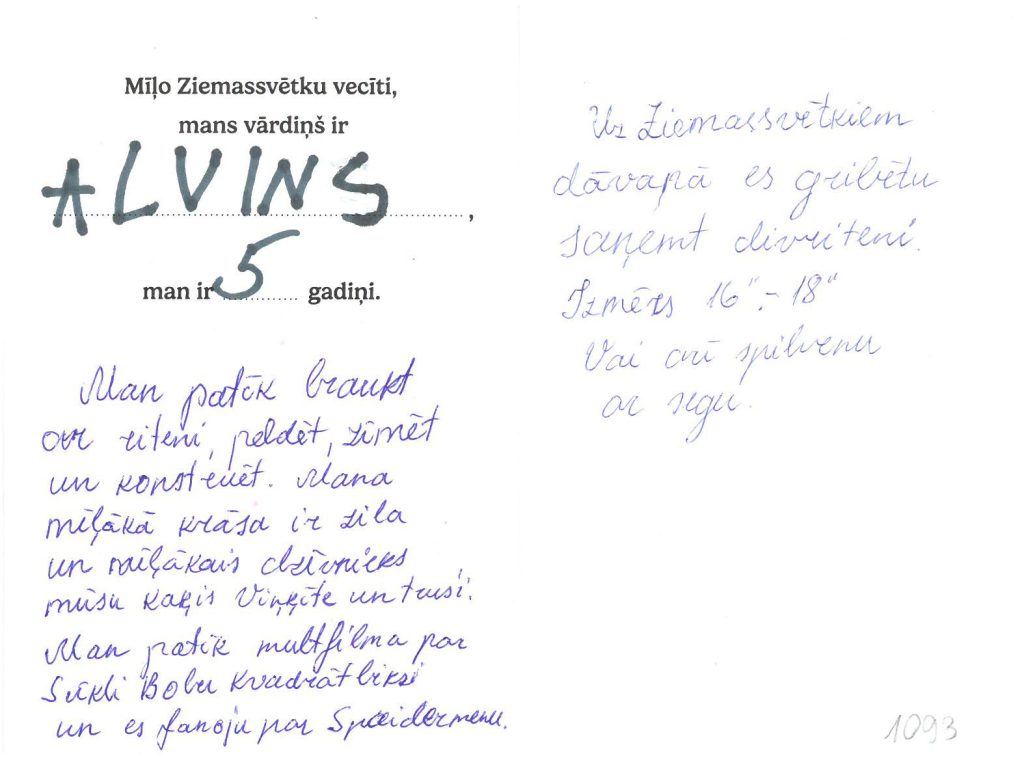 Mīļo Ziemassvētku vecīti,
mans vārdiņš ir
ALVINS,
man ir 5 gadiņi.
Man patīk braukt
ar riteni, peldēt, zīmēt
un konstruēt. Mana
mīļākā krāsa ir zila
un mīļākais dzīvnieks
mūsu kaķis Viņķīte un truši.
Man patīk multfilma par
Sūkli Bobu Kvadrātbiksi
un es fanoju par Spaidermenu.
Uz Ziemassvētkiem
dāvanā es gribētu
saņemt divriteni.
Izmērs 16" - 18"
Vai arī spilvenu
ar segu.
1093